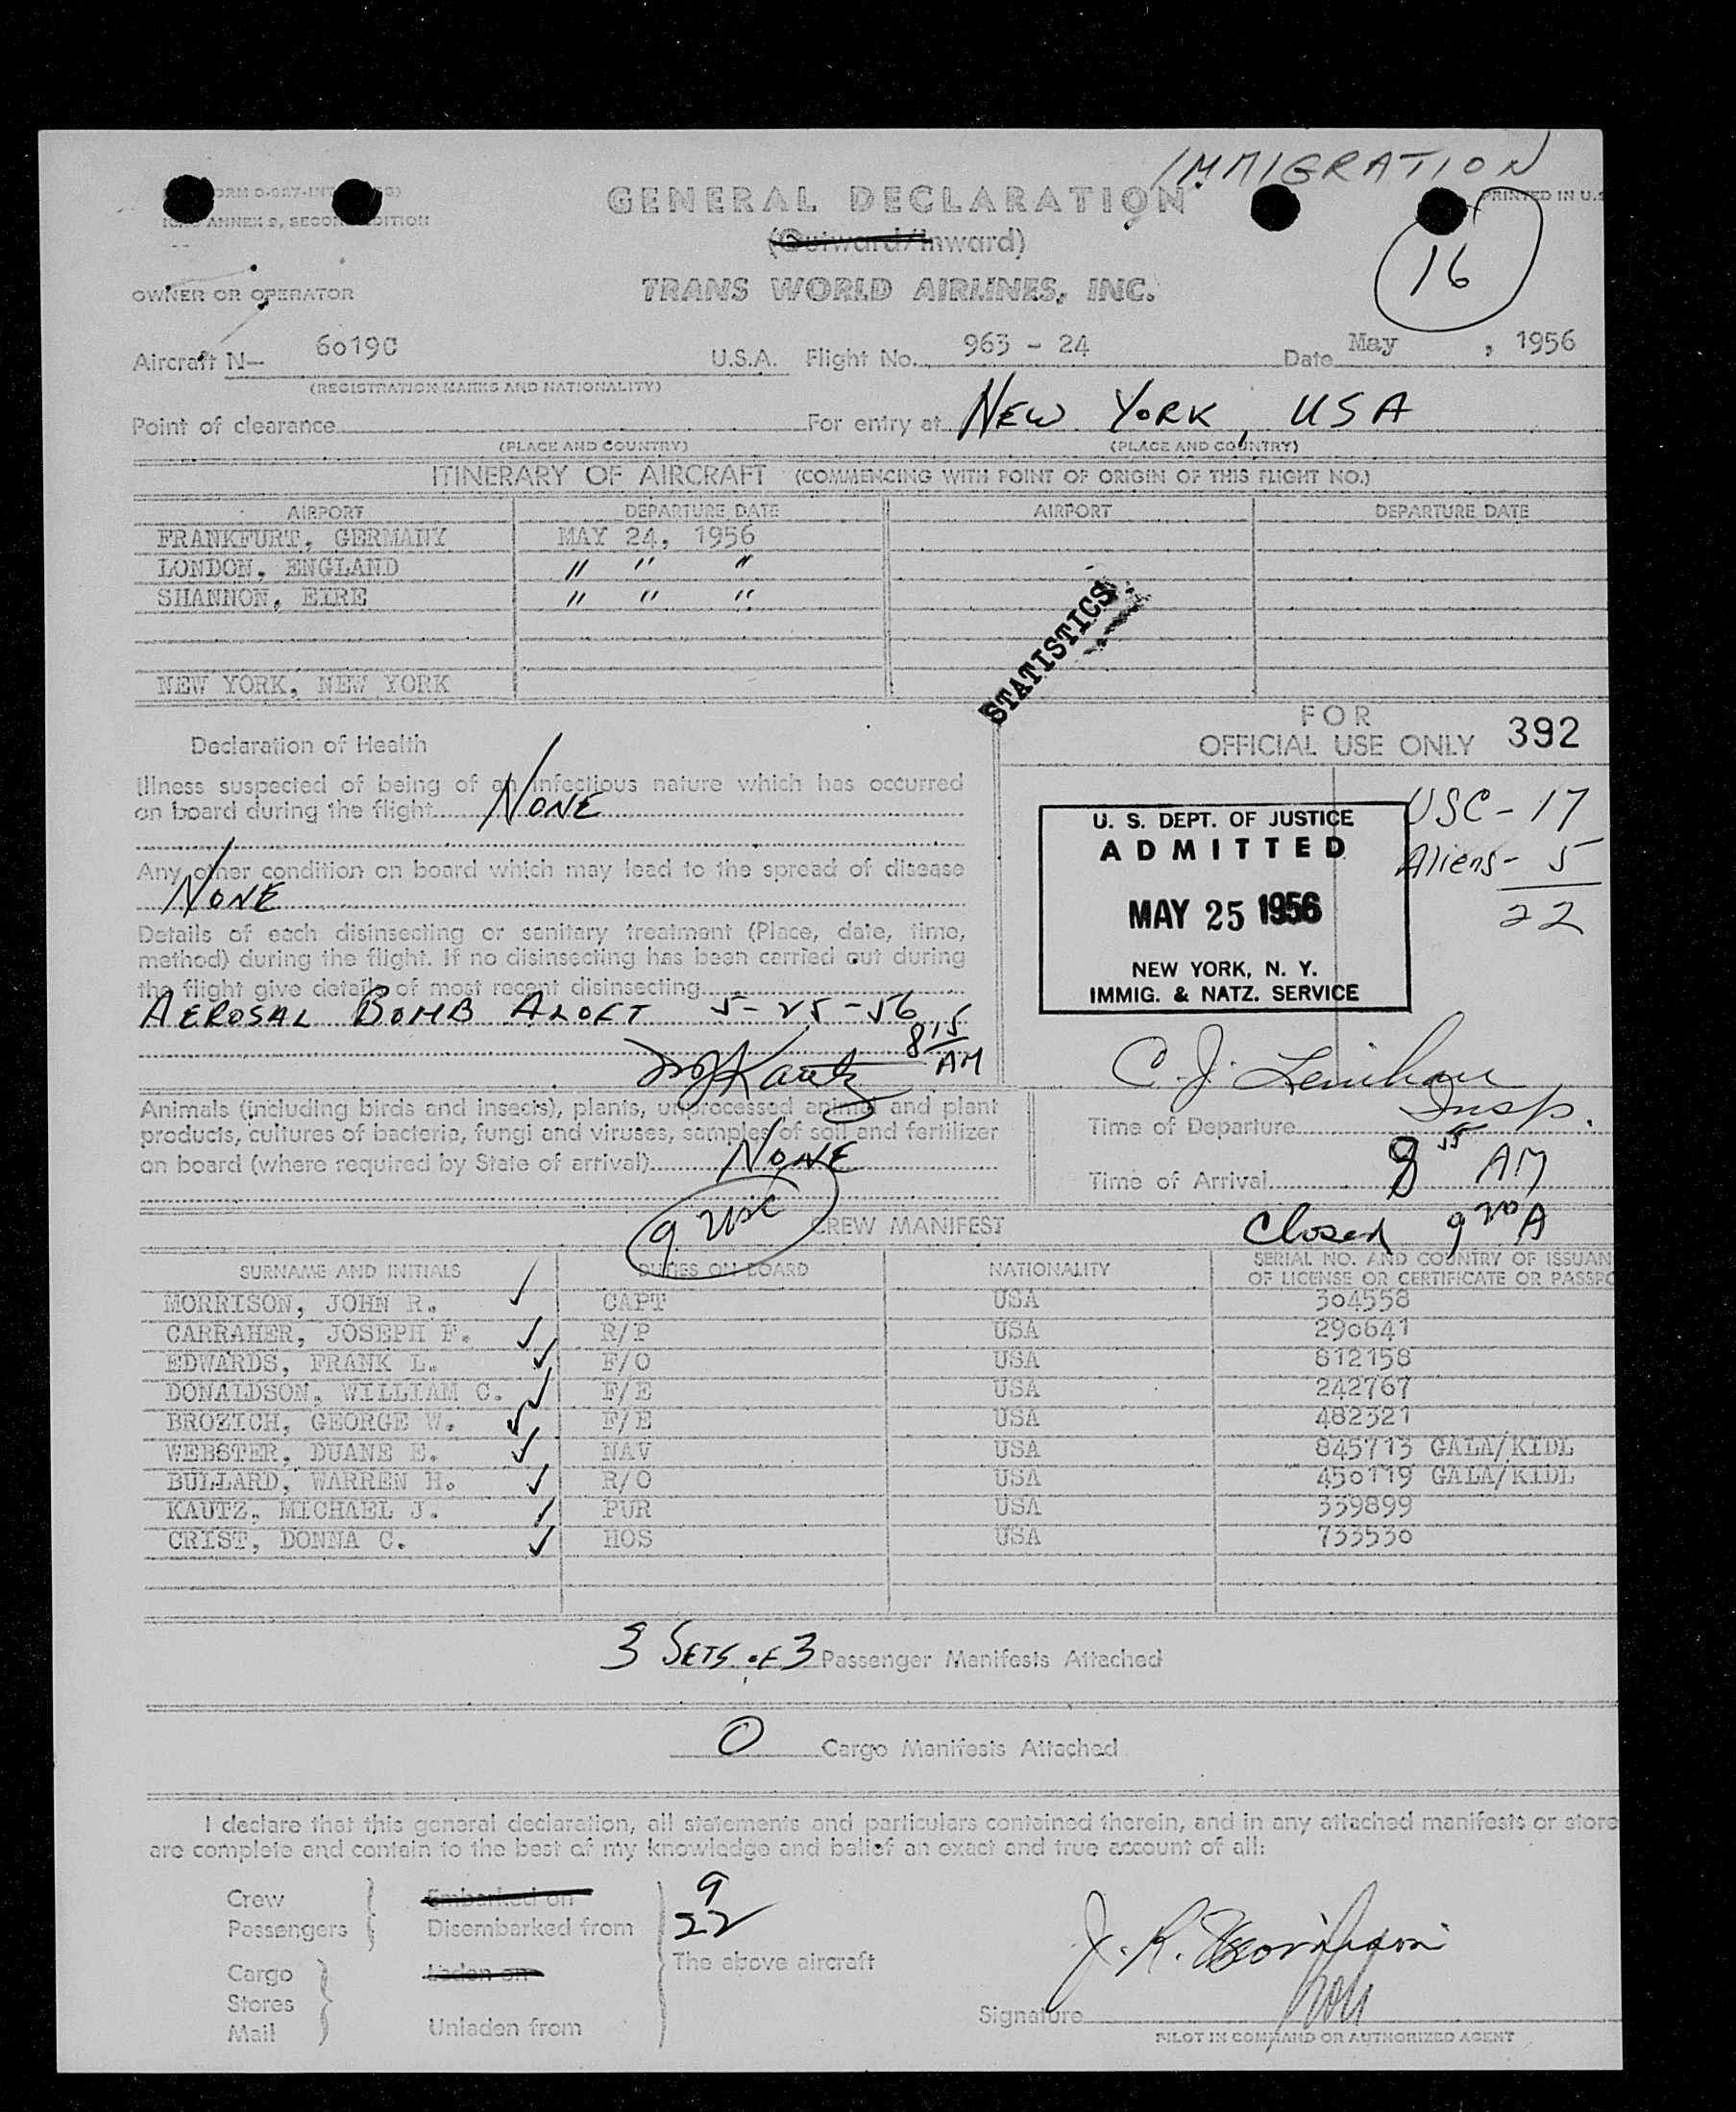 IMMIGRATION
GENERAL DECLARATION
PRINTED IN U.S
ANNEX 9, SECOND EDITION
(Outward/Inward)
16
OWNER OR OPERATOR
TRANS WORLD AIRLINES, INC.
Aircraft N— 6019C U.S.A. Flight No. 963 - 24 Date May , 1956
(REGISTRATION MARKS AND NATIONALITY)
Point of clearance For entry at NEW YORK, USA
(PLACE AND COUNTRY) (PLACE AND COUNTRY)
ITINERARY OF AIRCRAFT (COMMENCING WITH POINT OF ORIGIN OF THIS FLIGHT NO.)
AIRPORT DEPARTURE DATE AIRPORT DEPARTURE DATE
FRANKFURT, GERMANY MAY 24, 1956
LONDON, ENGLAND " " "
SHANNON, EIRE " " "
NEW YORK, NEW YORK
STATISTICS
FOR
OFFICIAL USE ONLY 392
Declaration of Health
Illness suspected of being of an infectious nature which has occurred
on board during the flight NONE
Any other condition on board which may lead to the spread of disease
NONE
Details of each disinsecting or sanitary treatment (Place, date, time,
method) during the flight. If no disinsecting has been carried out during
the flight give details of most recent disinsecting
AEROSAL BOMB ALOFT 5-25-56
8 15 AM
MJ Kautz
U. S. DEPT. OF JUSTICE
ADMITTED
MAY 25 1956
NEW YORK, N. Y.
IMMIG. & NATZ. SERVICE
USC - 17
Aliens - 5
22
C. J. Lenihan
Insp.
Animals (including birds and insects), plants, unprocessed animal and plant
products, cultures of bacteria, fungi and viruses, samples of soil and fertilizer
on board (where required by State of arrival) NONE
Time of Departure
Time of Arrival 8 55 AM
Closed 9 20 A
9 USC
CREW MANIFEST
SURNAME AND INITIALS DUTIES ON BOARD NATIONALITY SERIAL NO. AND COUNTRY OF ISSUAN
OF LICENSE OR CERTIFICATE OR PASSPO
MORRISON, JOHN R. ✓ CAPT USA 304558
CARRAHER, JOSEPH F. ✓ R/P USA 290641
EDWARDS, FRANK L. ✓ F/O USA 812158
DONALDSON, WILLIAM C. ✓ F/E USA 242767
BROZICH, GEORGE W. ✓ F/E USA 482321
WEBSTER, DUANE E. ✓ NAV USA 845713 GALA/KIDL
BULLARD, WARREN H. ✓ R/O USA 450119 GALA/KIDL
KAUTZ, MICHAEL J. ✓ PUR USA 339899
CRIST, DONNA C. ✓ HOS USA 733530
3 SETS OF 3 Passenger Manifests Attached
0 Cargo Manifests Attached
I declare that this general declaration, all statements and particulars contained therein, and in any attached manifests or store
are complete and contain to the best of my knowledge and belief an exact and true account of all:
Crew Embarked on 9
Passengers Disembarked from 22
The above aircraft
Cargo Laden on
Stores
Mail Unladen from
J. R. Morrison
Signature
PILOT IN COMMAND OR AUTHORIZED AGENT